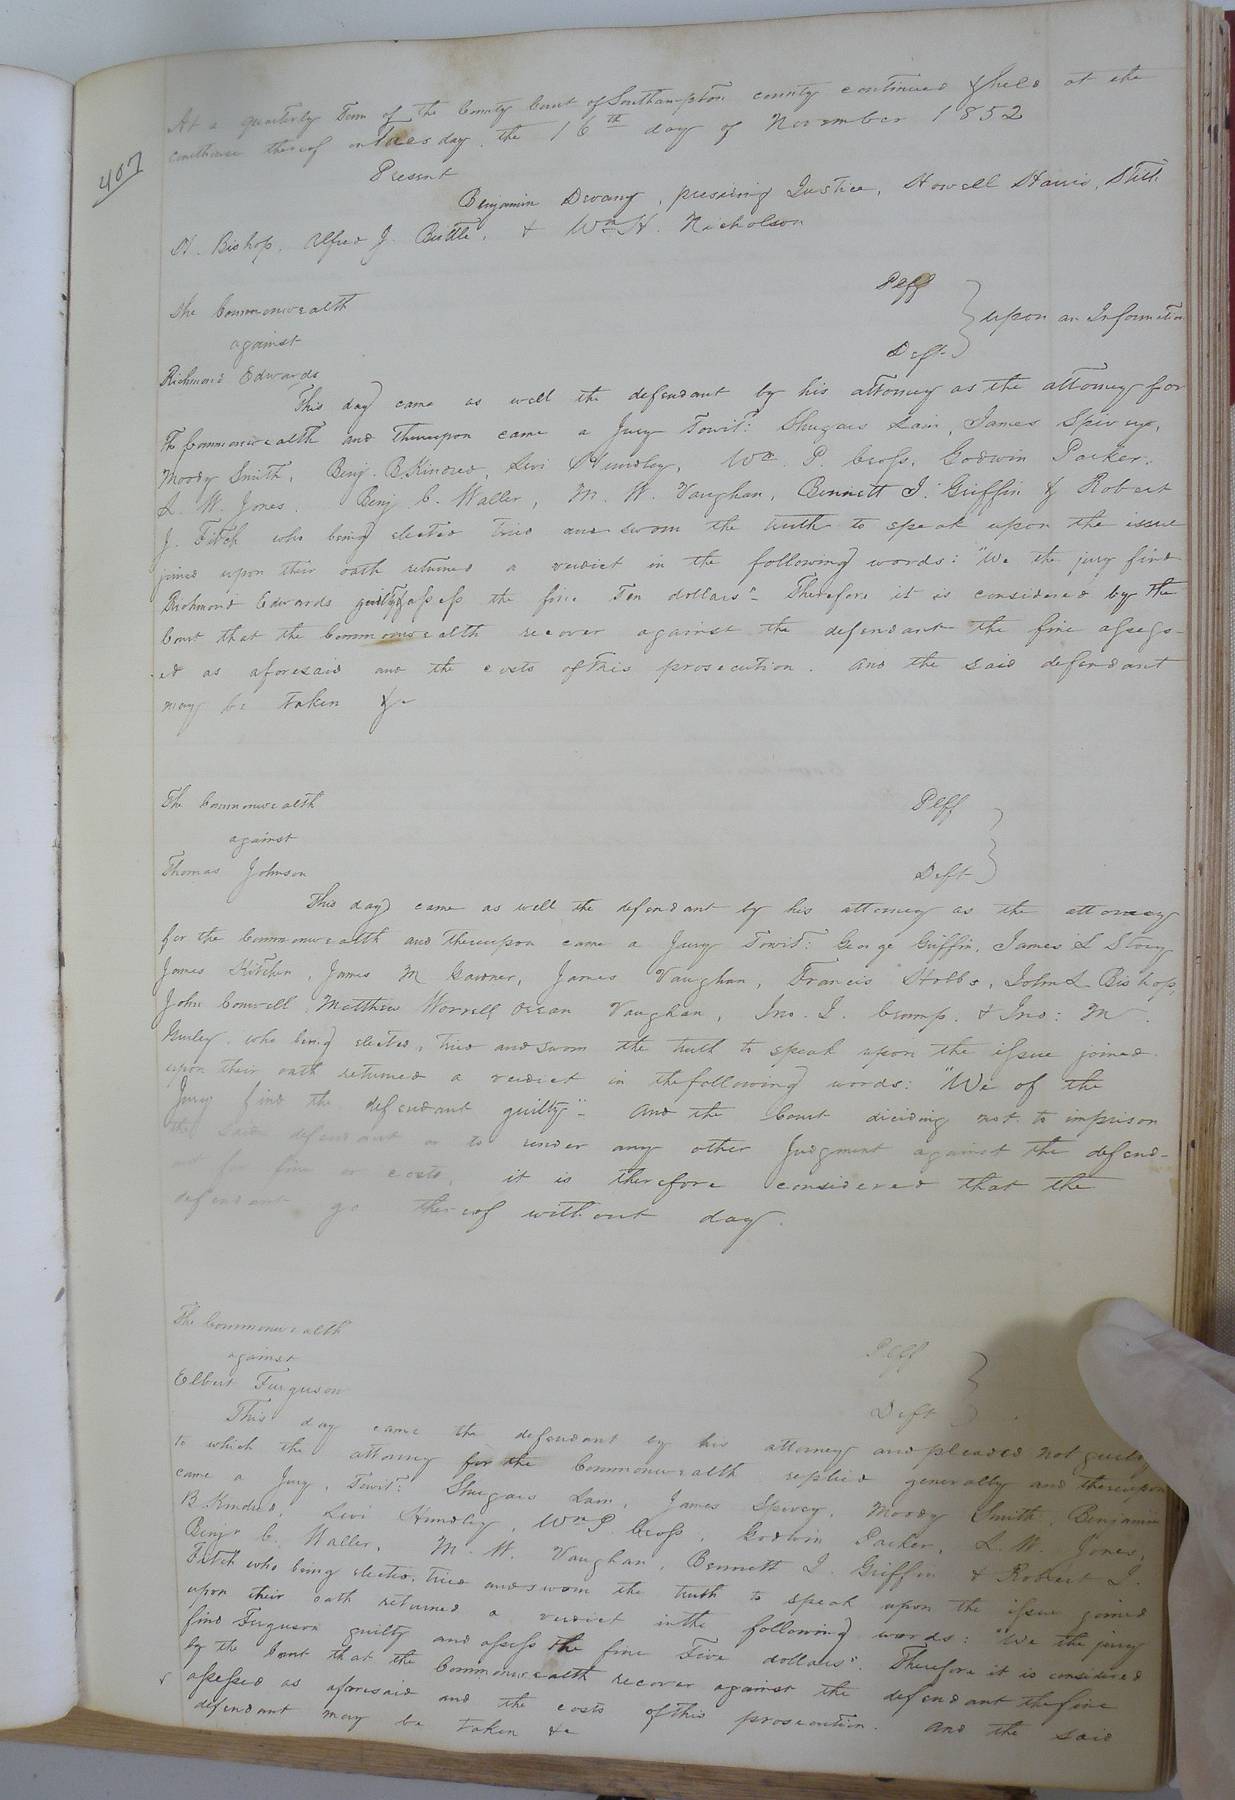 At a quarterly Term of the County Court of Southampton county continued & held at the
courthouse thereof on Tuesday the 16th day of November 1852
407
Present
Benjamin Devany, presiding Justice, Howell Harris, Stith
H. Bishop, Alfred J. Bittle, & Wm H. Nicholson
The Commonwealth Plff
against } upon an Information
Richmond Edwards Deft
This day came as well the defendant by his attorney as the attorney for
the Commonwealth and thereupon came a Jury Towit: Shugars Lain, James Spivey,
Moody Smith, Benj. B. Kindred, Levi Hundley, Wm. P. Cross, Godwin Parker,
L. W. Jones, Benj C. Waller, M. W. Vaughan, Bennett J. Griffin & Robert
J. Fitch who being elected tried and sworn the truth to speak upon the issue
joined upon their oath returned a verdict in the following words: "We the jury find
Richmond Edwards guilty & assess the fine Ten dollars" - Therefore it is considered by the
Court that the Commonwealth recover against the defendant the fine assess-
ed as aforesaid and the costs of this prosecution. and the said defendant
may be taken &c
The Commonwealth Plff
against }
Thomas Johnson Deft
This day came as well the defendant by his attorney as the attorney
for the Commonwealth and thereupon came a Jury Towit: George Griffin, James L Story
James Kitchen, James M Gardner, James Vaughan, Francis Hobbs, John L Bishop,
John Conwell, Matthew Worrell Vaughan, Jno. J. Crump, & Jno: M.
Gurley, who being elected, tried and sworn the truth to speak upon the issue joined
upon their oath returned a verdict in the following words: "We of the
Jury find the defendant guilty" - and the Court deciding not to imprison
the said defendant or to render any other Judgment against the defend-
ant for fine or costs, it is therefore considered that the
defendant go thereof without day.
The Commonwealth Plff
against }
Elbert Furguson Deft
This day came the defendant by his attorney and pleaded not guilty
to which the attorney for the Commonwealth replied generally and thereupon
came a Jury, Towit: Shugars Lain, James Spivey, Moody Smith, Benjamin
B Kindred, Levi Hundley, Wm P. Cross, Godwin Parker, L. W. Jones,
Benjn C. Waller, M. W. Vaughan, Bennett J. Griffin & Robert J.
Fitch who being elected, tried and sworn the truth to speak upon the issue joined
upon their oath returned a verdict in the following words: "We the jury
find Furguson guilty and assess the fine Five dollars". Therefore it is considered
by the Court that the Commonwealth recover against the defendant the fine
assessed as aforesaid and the costs of this prosecution. and the said
defendant may be taken &c